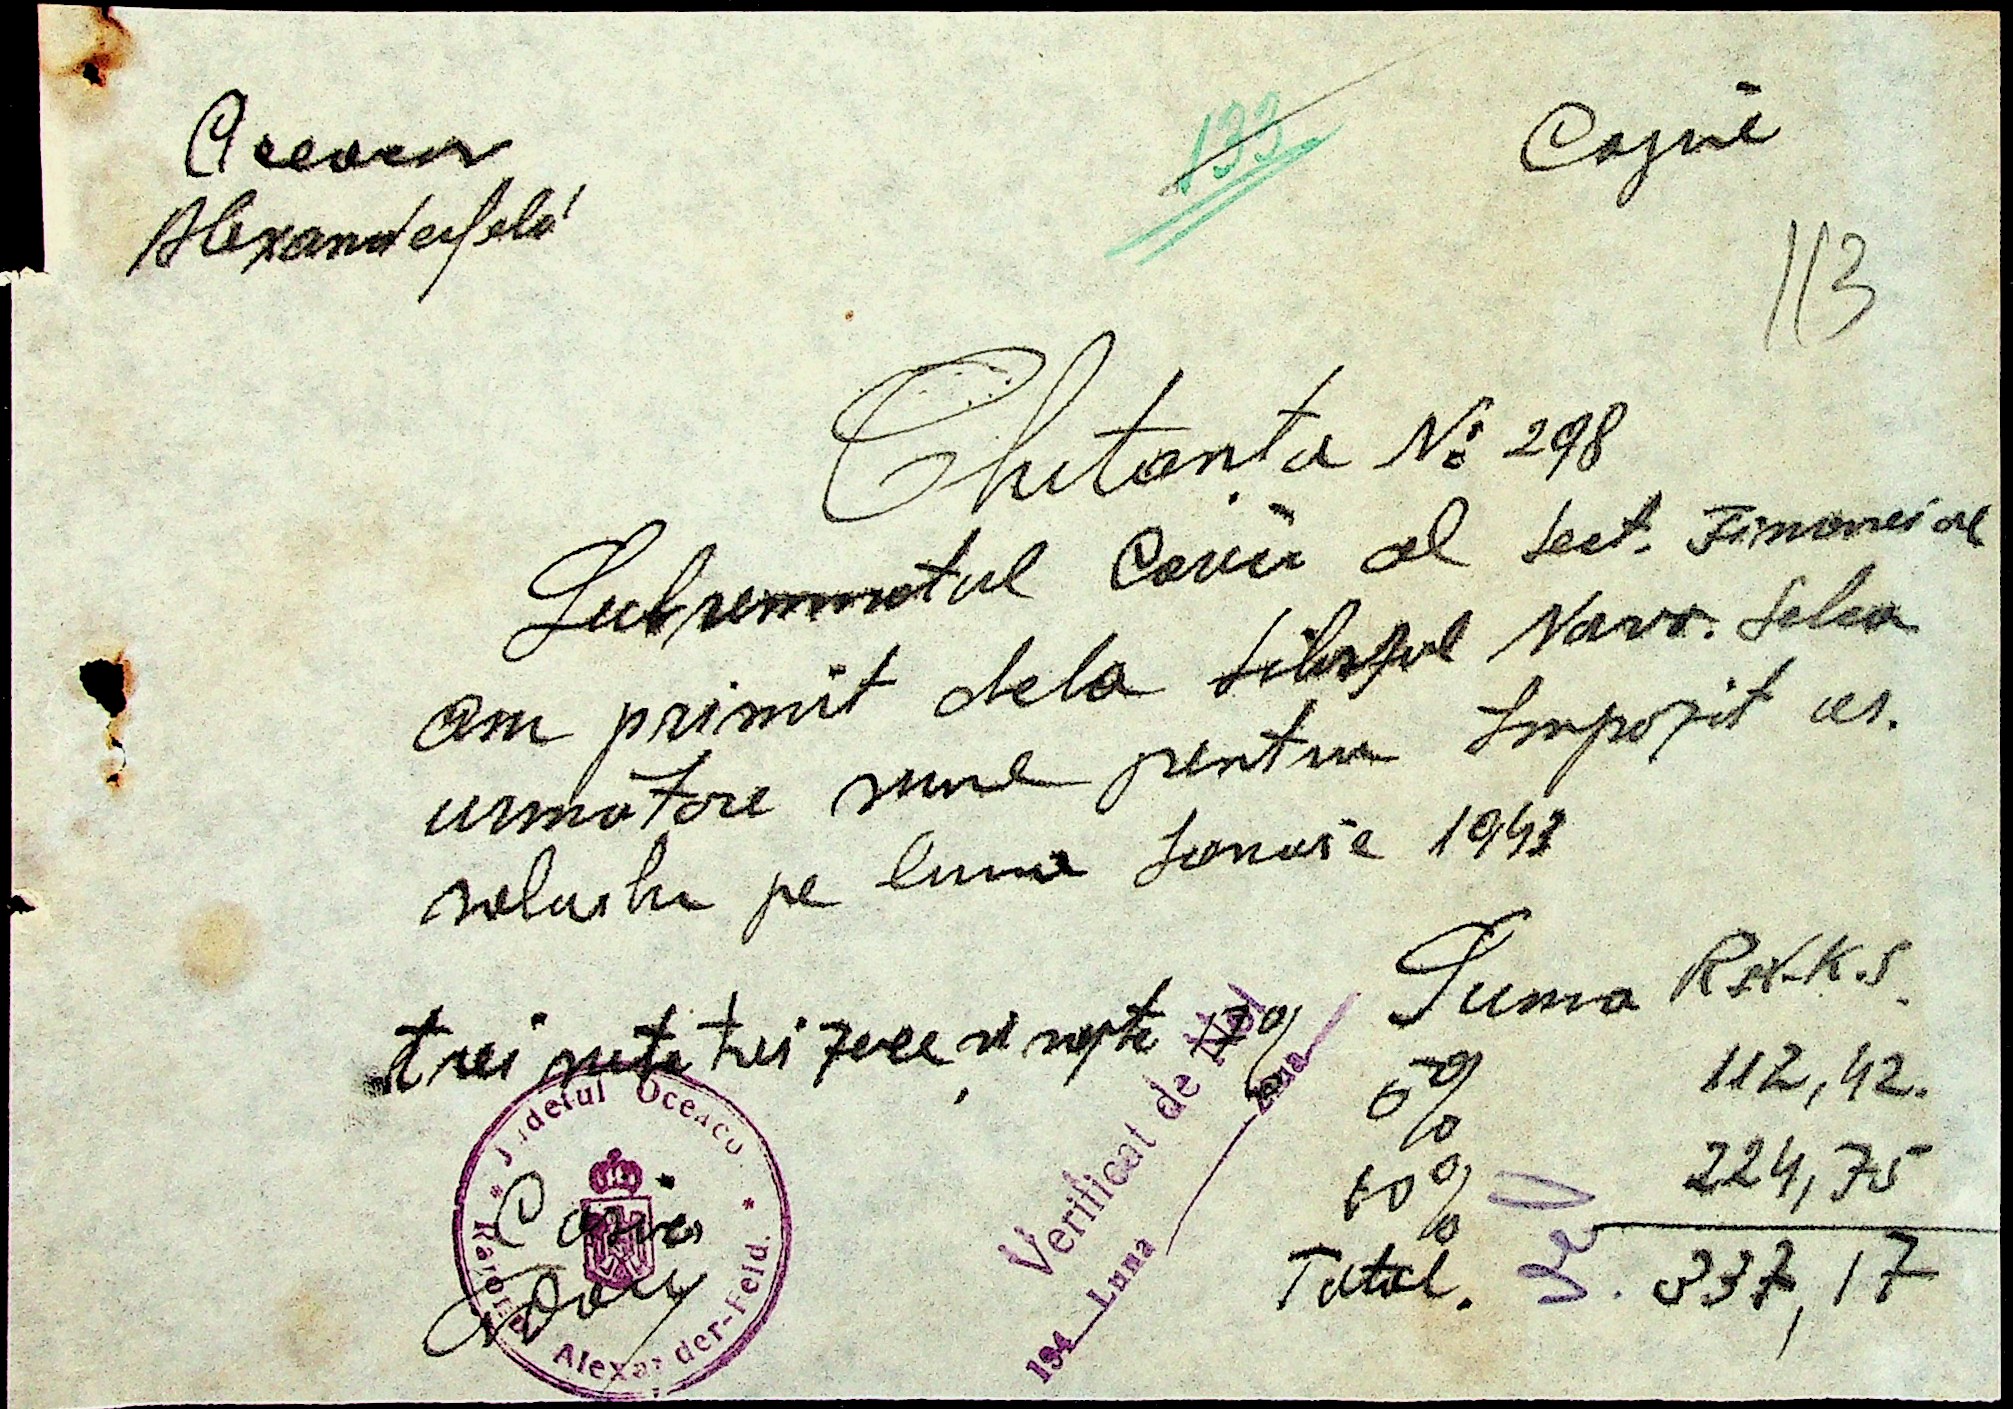 Alexanderfeld
133
Copie
113
Chitanta No 298
Subsemnatul Casier al Sect. Financiar
am primit dela Silozul Novo. Selca
urmatore sume pentru Impozit as.
salariu pe luna Ianuarie 1943
Suma RKKS.
trei sute trei zece si septe 17%
5% 112,42.
10% 224,75
Total. 337,17
Judetul Oceacov
Raionul Alexander-Feld.
Casier
Verificat de Noi
194 Luna Ziua